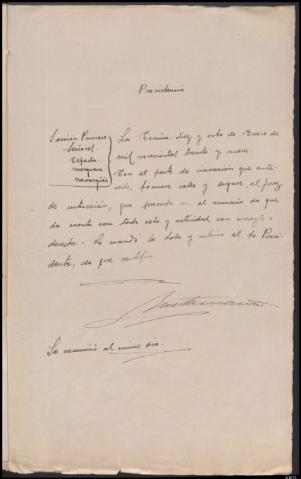 Presidencia
Sección Primera
Señores
Cepeda
Mosquera
Navarrete
La Coruña, diez y ocho de Enero de
mil novecientos treinta y nueve.
Con el parte de incoación que ante-
cede, fórmese rollo y dígase al Juez
de instrucción, que proceda en el sumario de que
da cuenta con todo celo y actividad con arreglo a
derecho.- Lo mandó la Sala y rubrica el Sr. Presi-
dente, de que certifico
Se comunicó el mismo día.